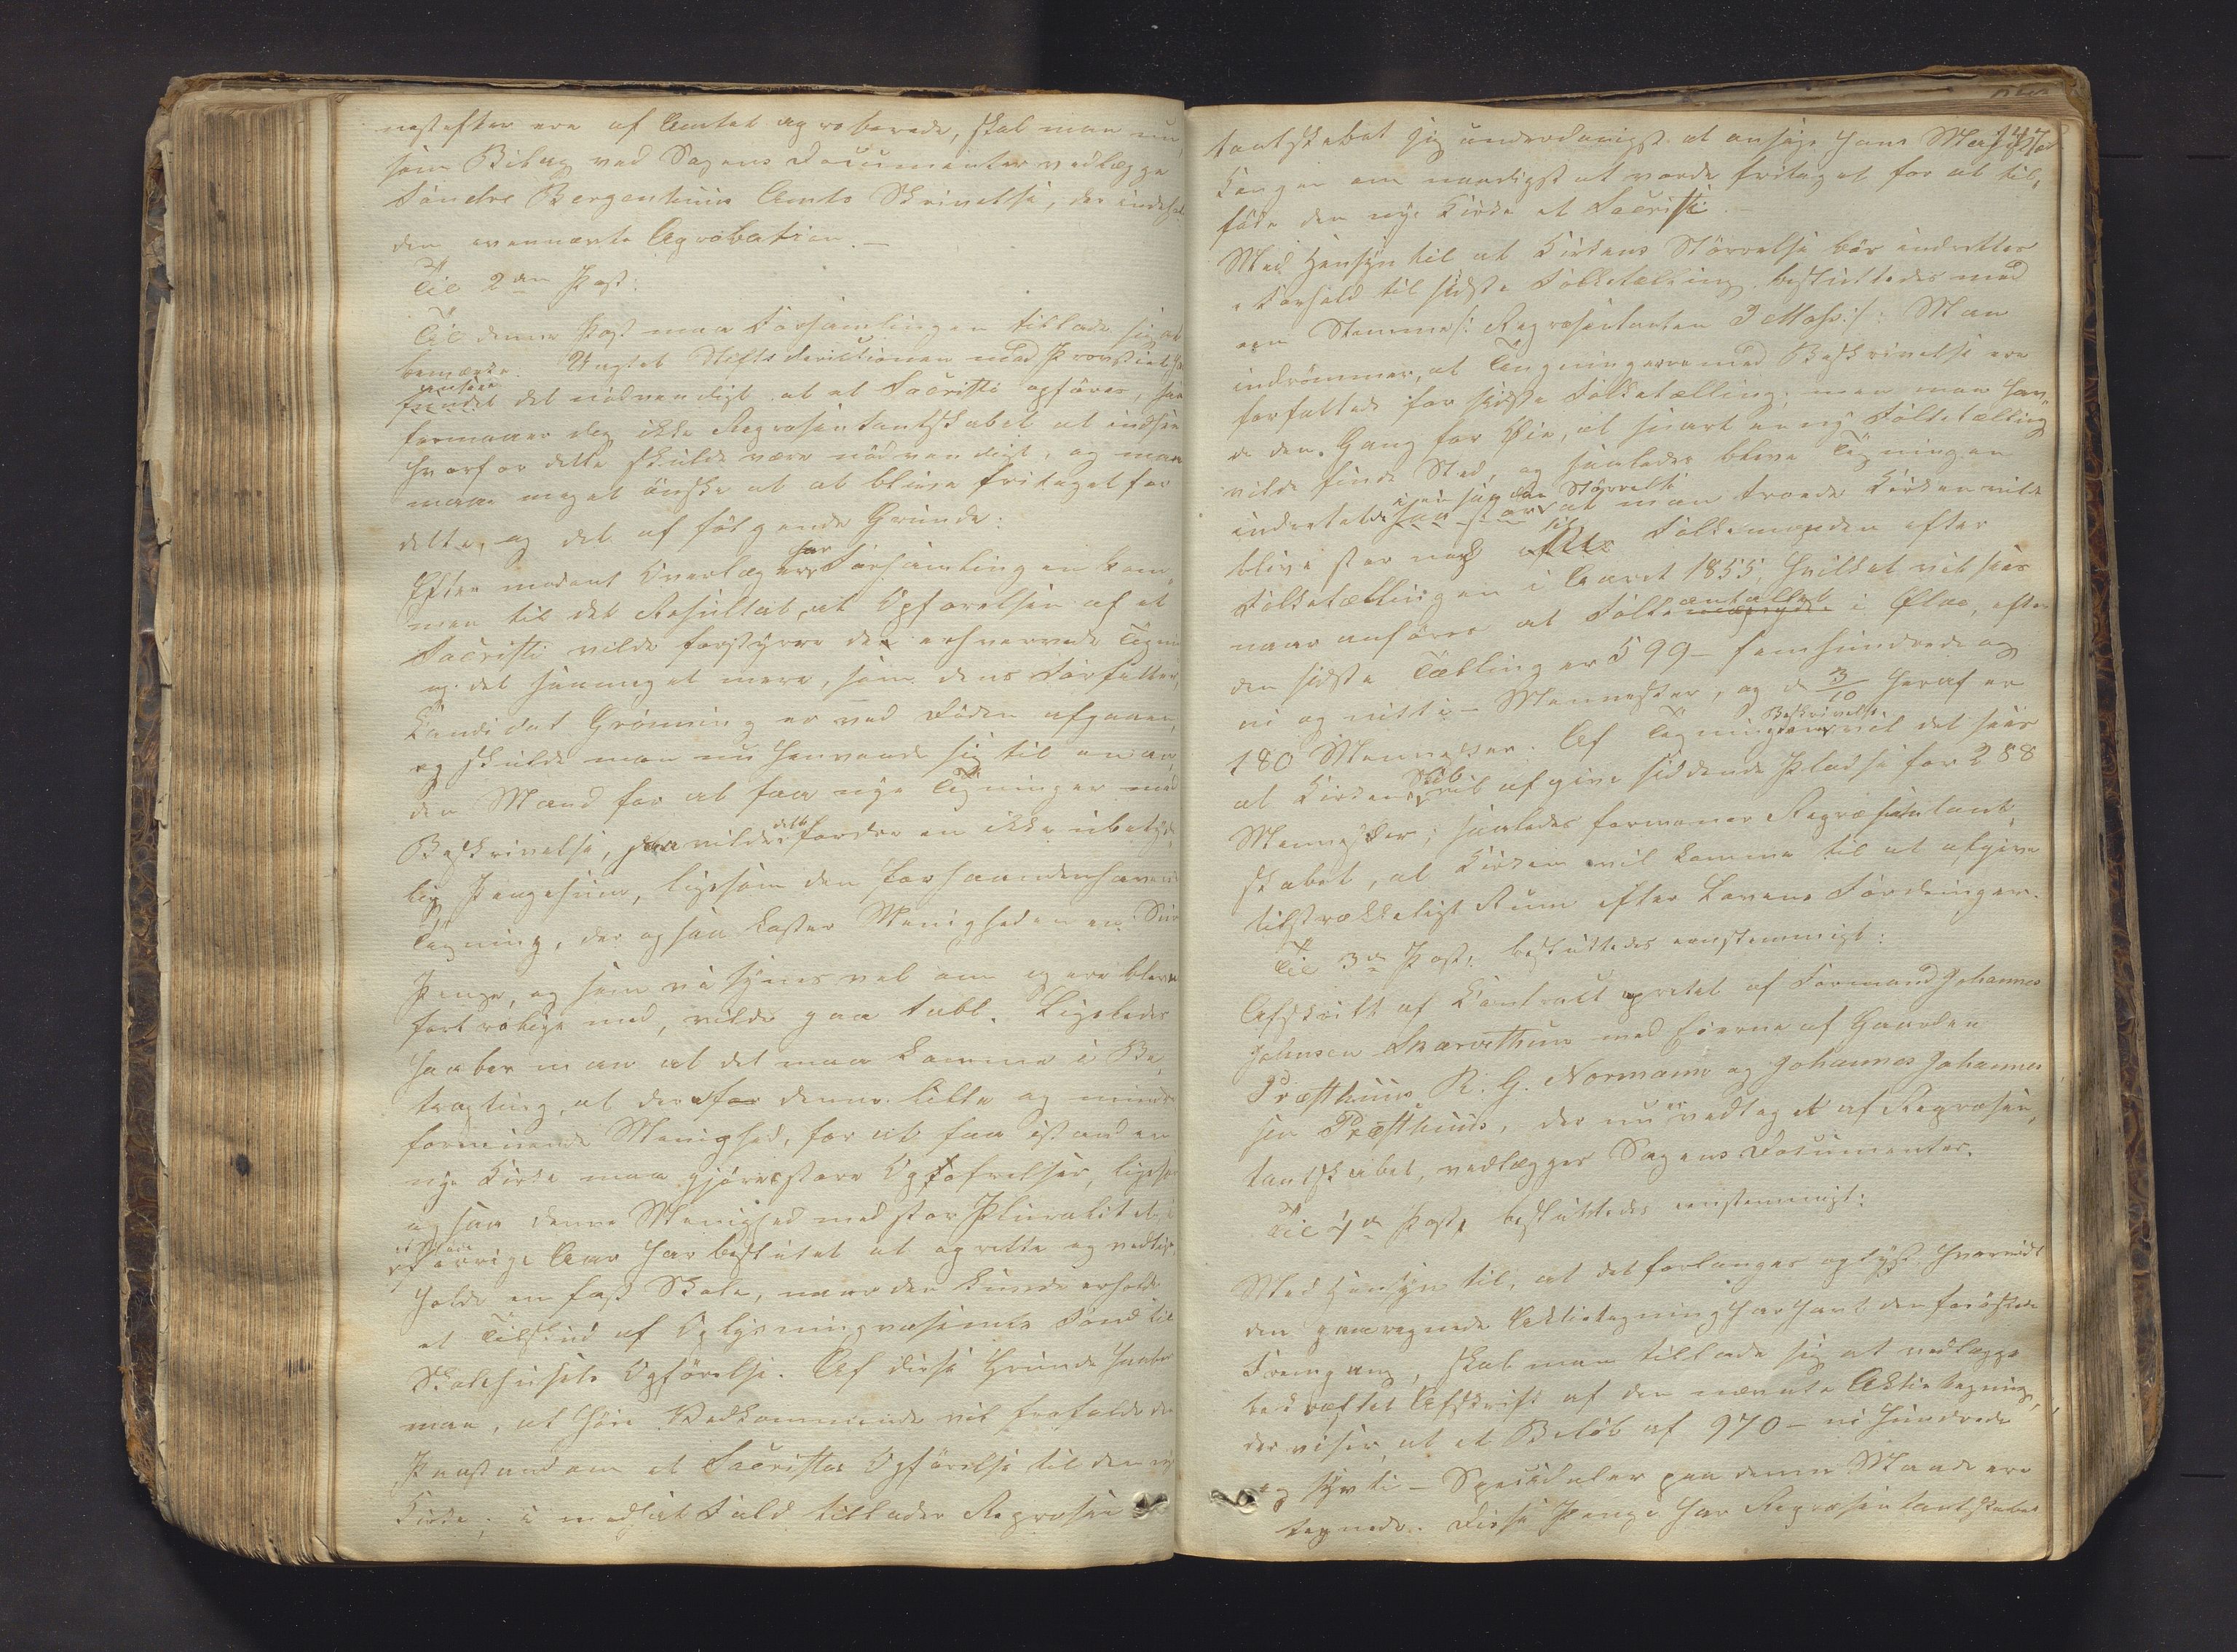 nestefter ere af Amtet approberede, skal man nu,
som Bilag ved Sagens Documenter vedlægge
Søndre Bergenhuus Amts Skrivelse, der indehol
den evennævnte Approbation. —
Til 2den Post:
Til denne Post maa Forsamlingen tillade sig at
bemærke. Uagtet Stiftsdirectionen med Provstiet
ansees
findet det nødvendigt at et Sacristi opføres, saa
formaaer dog ikke Repræsentantskabet at indsee
hvorfor dette skulde være nødvendigt, og man
maa meget ønske at at blive fritaget for
dette, og det af følgende Grunde:
Efter modent Overlæg er har Forsamlingen kom-
men til det Resultat, at Opførelsen af et
Sacristi vilde forstyrre den erhvervede Tegning
og det saameget mere, som dens Forfatter,
Candidat Grønning er ved Døden afgaaen,
og skulde man nu henvende sig til en an-
den Mand for at faa nye Tegninger med
Beskrivelse, saa vilde dette fordre en ikke ubetyde-
lig Pengesum, ligesom den forhaandenhavende
Tegning, der ogsaa koster Menigheden en Sum
Penge, og som vi synes vel om og ere bleven
fortrolige med, vilde gaa tabt. Ligeledes
haaber man at det maa komme i Be-
tragtning, at der for denne lille og mindre
formuende Menighed, for at faa istand en
nye Kirke maa gjøres store Opofrelser, ligesom
ogsaa denne Menighed med stor Pluralitet i
forrige Aar har besluttet at oprette og vedlige-
holde en fast Skole, naar der kunde erholdes
et Tilskud af Oplysningsvæsenets Fond til
Skolehusets Opførelse. Af disse Grunde haaber
man, at Høie Vedkommende vil frafalde den
Paastand om et Sacristies Opførelse til den nye
Kirke; i modsat Fald tillader Repræsen-
147
tantskabet sig underdanigst at ansøge Hans Majestæt
Kongen om naadigst at vorde fritaget for at til-
føie den nye Kirke et Sacristi. —
Med Hensyn til at Kirkens Størrelse bør indrettes
i Forhold til sidste Folketælling besluttedes med
een Stemme /: Repræsentanten J Moss: /: Man
indrømmer, at Tegningerne med Beskrivelse ere
forfattede før sidste Folketælling; men man hav-
de den Gang for Øie, at snart en ny Folketælling
vilde finde Sted, og saaledes bleve Tegningen
i en saadan Størrelse
indrettede saa stor at man troede Kirken vilde
blive stor nok til Folkemængden efter
Folketællingen i Aaret 1855, hvilket vil sees
antallet
naar anføres at Folkemængde i Ølve, efter
den sidste Tælling er 599 – femhundrede og
ni og nitti – Mennesker, og de 3/10 heraf er
Beskrivelse
180 Mennesker. Af Tegningens vil det sees
at Kirkens Skib vil afgive siddende Pladse for 288
Mennesker; saaledes formener Repræsentant-
skabet, at Kirken vil komme til at afgive
tilstrækkeligt Rum efter Lovens Fordringer.
Til 3de Post, besluttedes eenstemmigt:
Afskrift af Contract oprettet af Formand Johannes
Johnsen Snarvethun med Eierne af Gaarden
Præsthuus R. G. Normann og Johannes Johannes-
sen Præsthuus, der nu er vedtaget af Repræsen-
tantskabet, vedlægges Sagens Documenter.
Til 4de Post, besluttedes eenstemmigt:
Med Hensyn til, at det forlanges oplyst, hvorvidt
den paaregnede Aktietegning har havt den forønskede
Fremgang, skal man tillade sig at vedlægge
bekræftet Afskrift af den nævnte Aktietegning,
der viser, at et Beløb af 970 – ni Hundrede
og sytti – Speciedaler paa denne Maade ere
tegnede. Disse Penge har Repræsentantskabet